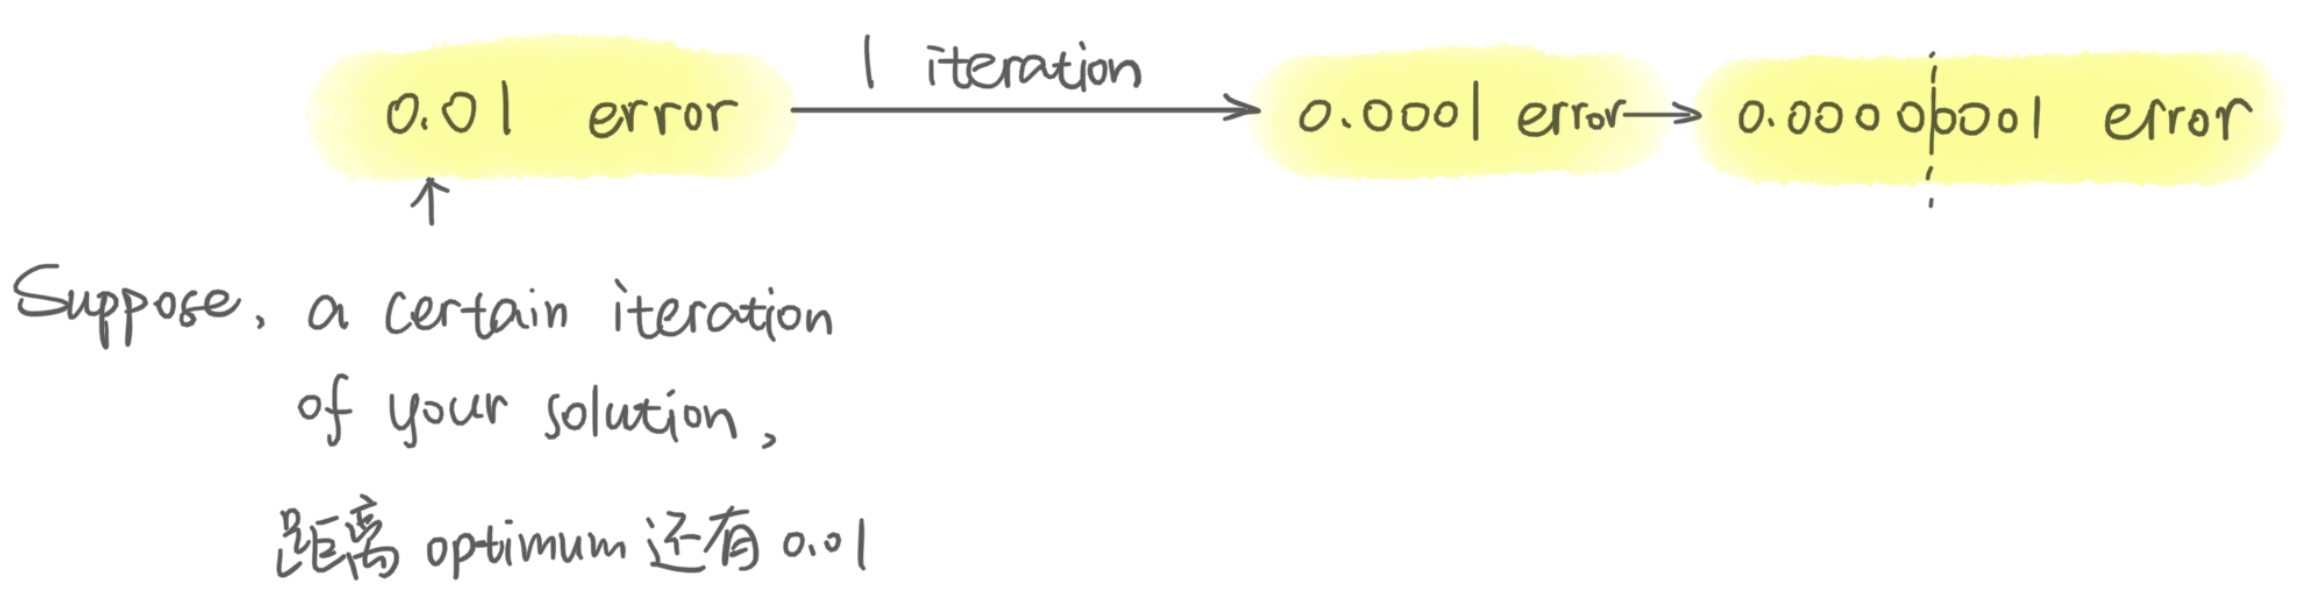 0.01 error 1 iteration 0.0001 error 0.00000001 error
Suppose, a certain iteration
of your solution,
距离 optimum 还有 0.01